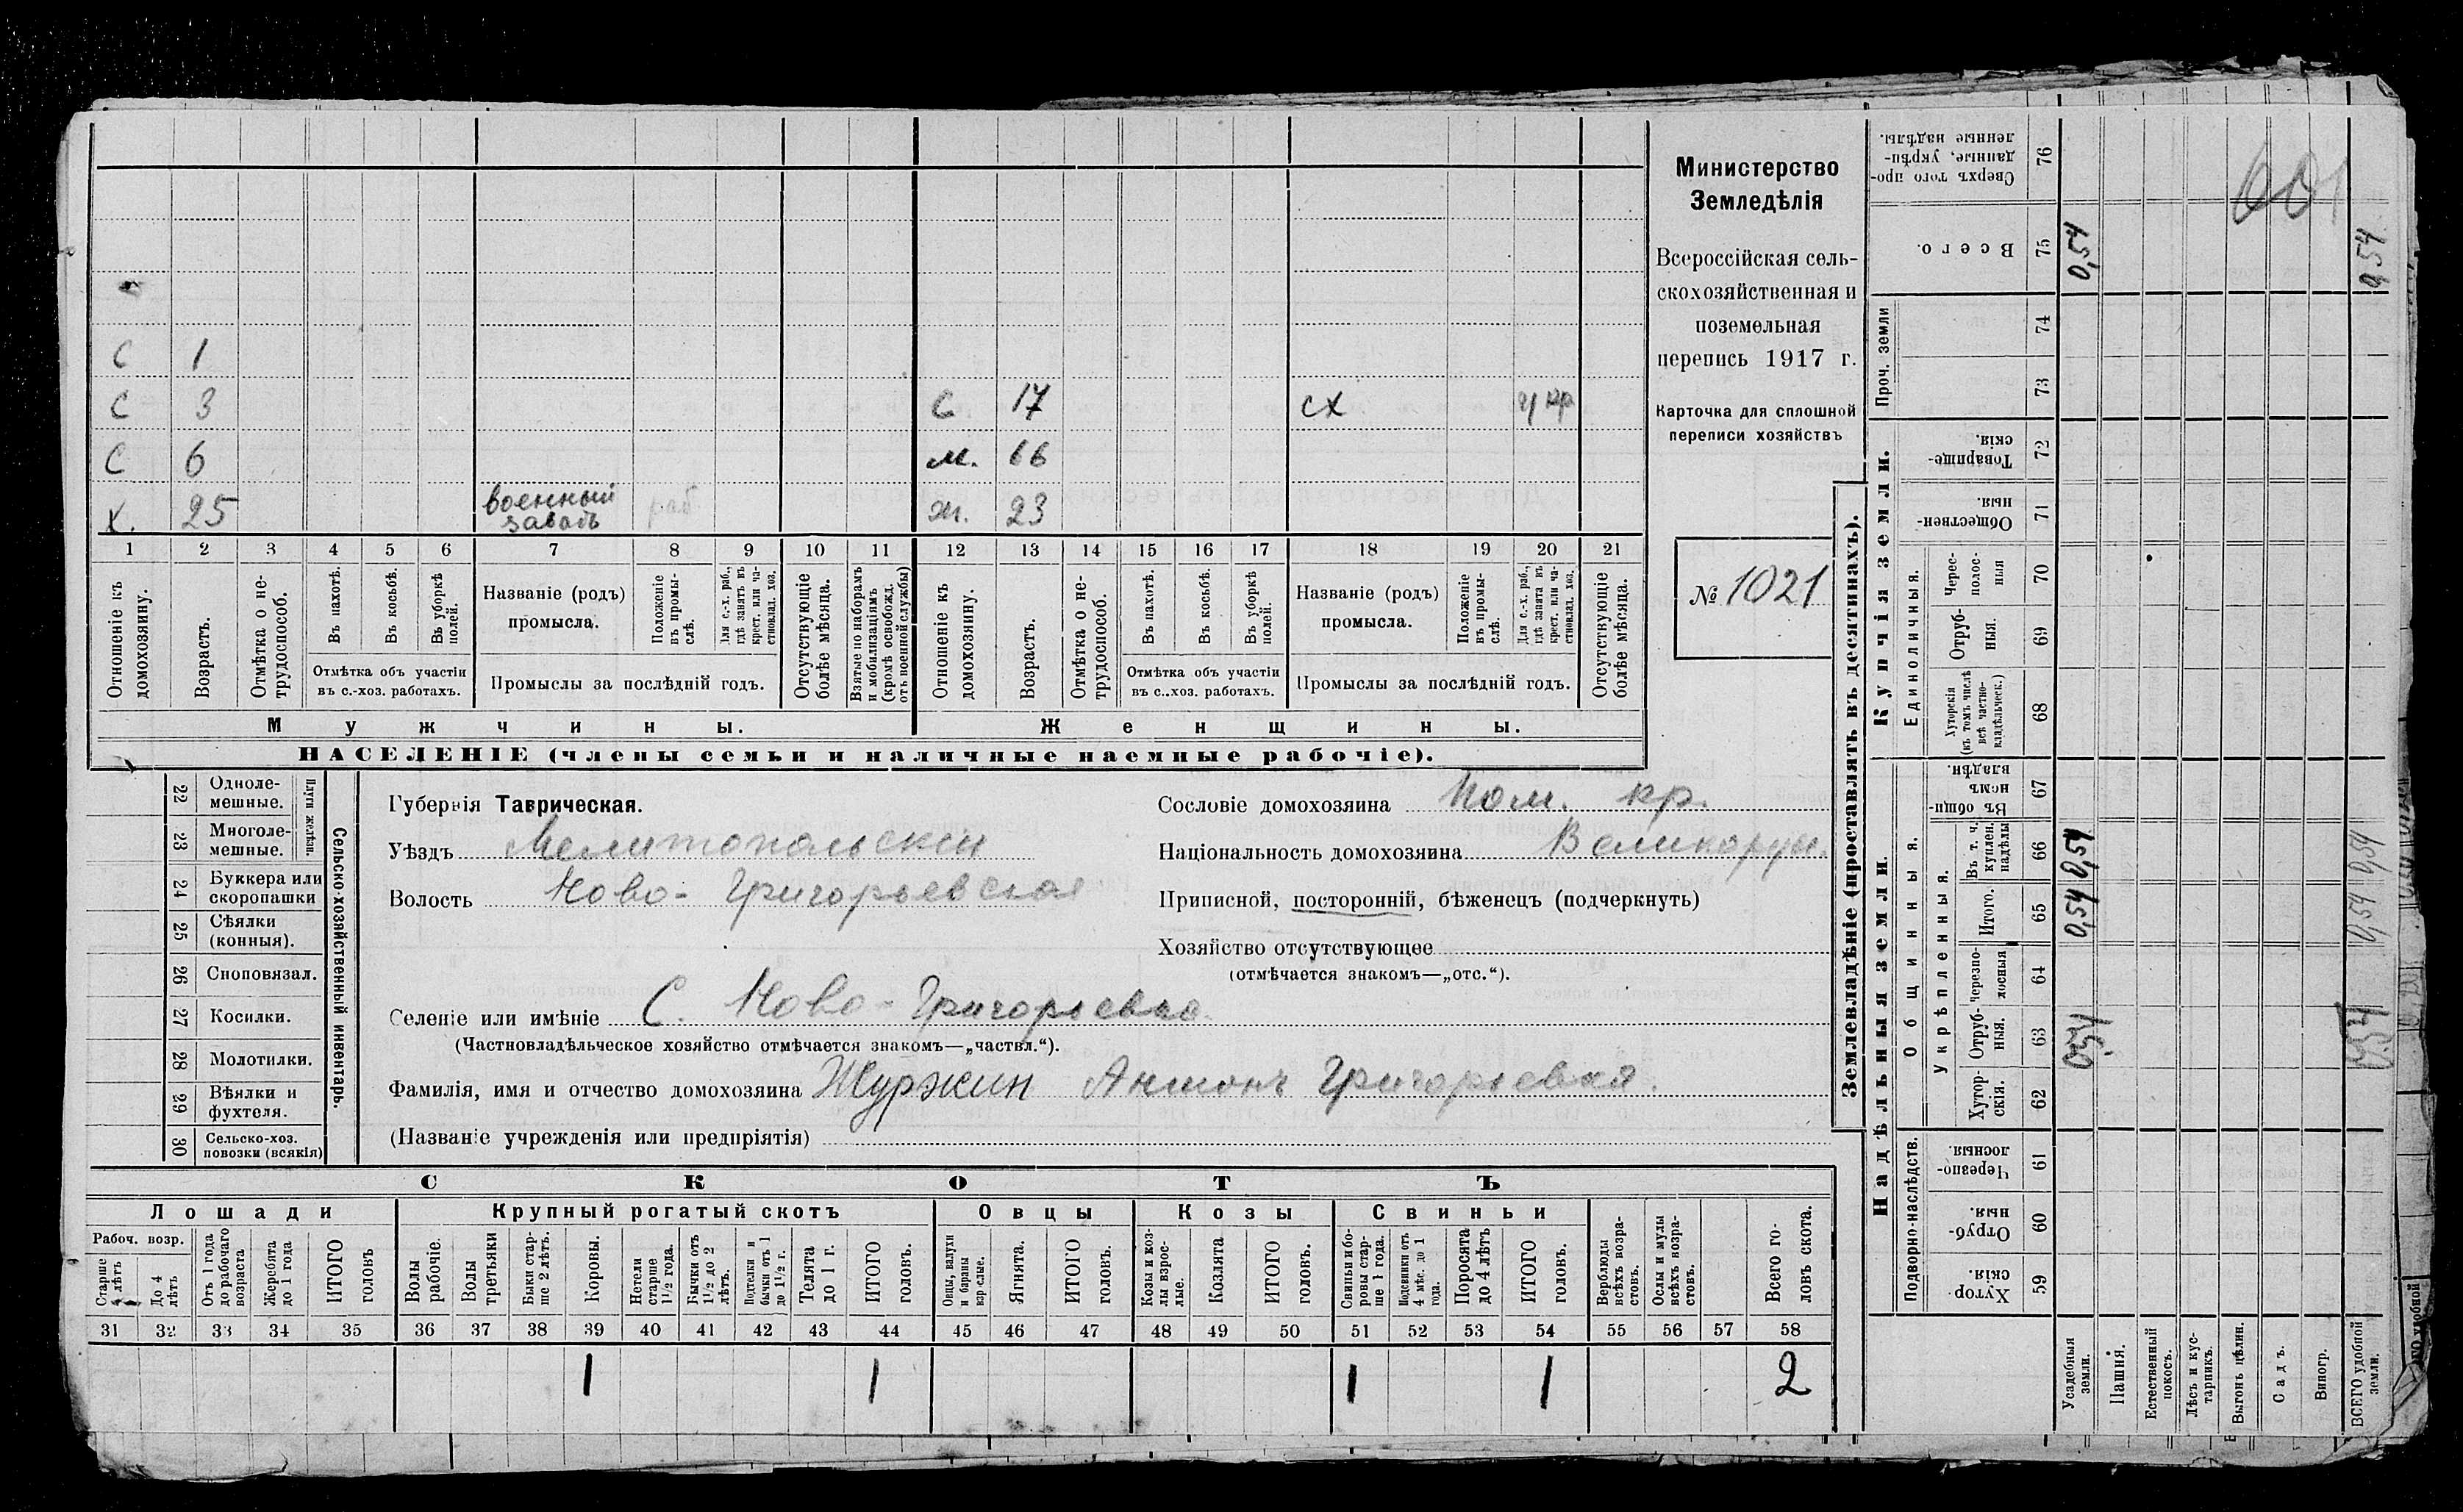 С 1
С 3 С 17 сх у кр
С 6 м. 66
Х. 25 военный заводъ раб ж. 23
1 2 3 4 5 6 7 8 9 10 11 12 13 14 15 16 17 18 19 20 21
Отношеніе къ домохозяину.
Возрастъ.
Отмѣтка о нетрудоспособ.
Въ пахотѣ.
Въ косьбѣ.
Въ уборкѣ полей.
Отмѣтка объ участіи въ с.-хоз. работахъ.
Названіе (родъ) промысла.
Положеніе въ промыслѣ.
Для с.-х. раб., гдѣ занятъ въ крест. или частновлад. хоз.
Промыслы за послѣдній годъ.
Отсутствующіе болѣе мѣсяца.
Взятые по наборамъ и мобилизаціямъ (кромѣ освобожд. отъ военной службы)
Отношеніе къ домохозяину.
Возрастъ.
Отмѣтка о нетрудоспособ.
Въ пахотѣ.
Въ косьбѣ.
Въ уборкѣ полей.
Отмѣтка объ участіи въ с.-хоз. работахъ.
Названіе (родъ) промысла.
Положеніе въ промыслѣ.
Для с.-х. раб., гдѣ занята въ крест. или частновлад. хоз.
Промыслы за послѣдній годъ.
Отсутствующіе болѣе мѣсяца.
Мужчины. Женщины.
НАСЕЛЕНІЕ (члены семьи и наличные наемные рабочіе).
Министерство
Земледѣлія
Всероссійская сель-
скохозяйственная и
поземельная
перепись 1917 г.
Карточка для сплошной
переписи хозяйствъ
№ 1021
22 Одноле-мешные.
23 Многоле-мешные.
Плуги желѣзн.
24 Буккера или скоропашки
25 Сѣялки (конныя).
26 Сноповязал.
27 Косилки.
28 Молотилки.
29 Вѣялки и фухтеля.
30 Сельско-хоз. повозки (всякія)
Сельско-хозяйственный инвентарь.
Губернія Таврическая.
Уѣздъ Мелитопольскій
Волость Ново-Григорьевская
Селеніе или имѣніе С. Ново-Григорьевка
(Частновладѣльческое хозяйство отмѣчается знакомъ—„частвл.“).
Фамилія, имя и отчество домохозяина Журжин Антонъ Григорьевич.
(Названіе учрежденія или предпріятія)
Сословіе домохозяина кр.
Національность домохозяина Великорус.
Приписной, посторонній, бѣженецъ (подчеркнуть)
Хозяйство отсутствующее
(отмѣчается знакомъ—„отс.“).
СКОТЪ
Лошади Крупный рогатый скотъ Овцы Козы Свиньи
Рабоч. возр.
Старше 4 лѣтъ
До 4 лѣтъ
Отъ 1 года до рабочаго возраста
Жеребята до 1 года
ИТОГО головъ
Волы рабочіе.
Волы третьяки
Быки старше 2 лѣтъ.
Коровы.
Нетели старше 1½ года.
Бычки отъ 1½ до 2 лѣтъ.
Подтелки и бычки отъ 1 до 1½ г.
Телята до 1 г.
ИТОГО головъ.
Овцы, валухи и бараны взрослые.
Ягнята.
ИТОГО головъ.
Козы и козлы взрослые.
Козлята
ИТОГО головъ.
Свиньи и боровы старше 1 года.
Подсвинки отъ 4 мѣс. до 1 года.
Поросята до 4 лѣтъ
ИТОГО головъ.
Верблюды всѣхъ возрастовъ.
Ослы и мулы всѣхъ возрастовъ.
Всего головъ скота.
31 32 33 34 35 36 37 38 39 40 41 42 43 44 45 46 47 48 49 50 51 52 53 54 55 56 57 58
1 1 1 1 2
Землевладѣніе (проставлять въ десятинахъ).
Надѣльныя земли. Купчія земли. Проч. земли
Подворно-наслѣдств. Общинныя. Укрѣпленныя. Единоличныя.
Сверхъ того проданные, укрѣпленные надѣлы. 76
Всего. 75 0,54 0,54
74
73
Товарищескія. 72
Общественныя. 71
Чересполосныя 70
Отрубныя. 69
Хуторскія (въ томъ числѣ всѣ частновладѣльческ.) 68
Въ общинномъ владѣн. 67
Въ т. ч. куплен. надѣлы 66 0,54 0,54
Итого. 65 0,54 0,54
Черезполосныя 64
Отрубныя. 63
Хуторскія. 62
Черезполосныя. 61
Отрубныя. 60
Хуторскія. 59
Усадебныя земли.
Пашня.
Естественный покосъ.
Лѣсъ и кустарникъ.
Выгонъ цѣлин.
Садъ.
Виногр.
ВСЕГО удобной земли.